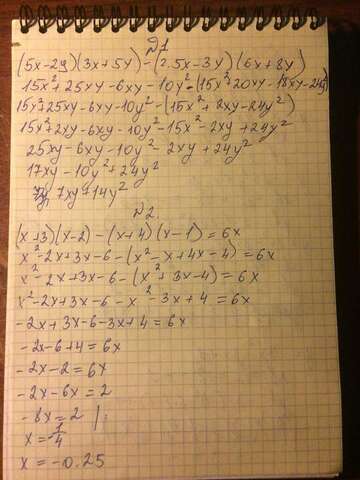 №1
(5x-2y)(3x+5y)-(2.5x-3y)(6x+8y)
15x²+25xy-6xy-10y²-(15x²+20xy-18xy-24y²)
15x²+25xy-6xy-10y²-(15x²+2xy-24y²)
15x²+2xy-6xy-10y²-15x²-2xy+24y²
25xy-6xy-10y²-2xy+24y²
17xy-10y²+24y²
7xy+14y²
№2.
(x+3)(x-2)-(x+4)(x-1)=6x
x²-2x+3x-6-(x²-x+4x-4)=6x
x²-2x+3x-6-(x²+3x-4)=6x
x²-2x+3x-6-x²-3x+4=6x
-2x+3x-6-3x+4=6x
-2x-6+4=6x
-2x-2=6x
-2x-6x=2
-8x=2 |
x=-1/4
x=-0.25